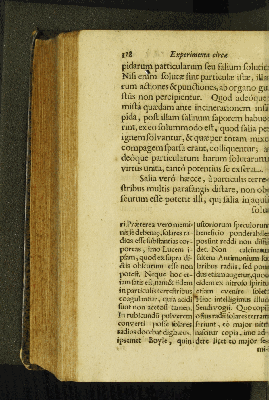 118 Experimenta circa
pidarum particularum seu salium solutio
Nisi enim solutæ sint particulæ istæ, illa
rum actiones & punctiones, ab organo gu
stûs non percipientur. Quod adeóque
mista quædam ante incinerationem insi
pida, post illam salinum saporem habue
rint, ex eo solummodo est, quod salia per
ignem solvantur, & quæ per totam mixti
compagem sparsa erant, colliquentur,
deóque particularum harum solutarum
virtus unita, tantò potentius se exserat.
Salia verò hæcce, à particulis terre
stribus multis parasangis distare, non ob
scurum esse potest illi, qui salia in aqua
solu
ri. Præterea vero memi-
nisse debemus, solares ra-
dios esse substantias cor-
poreas, imo Lucem i-
psam, quod ex supra di-
ctis obscurum esse non
potest. Neque hoc et-
iam satis est, nam & filtrum
in particulis terrestribus
coagulatur, cum acidi
sint non acetosi tantum
In rubicundū pulverem
converti posse solares
radios docebat digibæus.
ipsemet Boyle, quin
lustoriorum speculorum
beneficio ponderabiles
postint reddi non diffi-
det. Non calcinatum
solem Antimonium so-
laribus radiis, sed pon-
dus etiam augetur, quod
eidem ex nitroso spiritu
etiam evenire solet
Hinc intelligimus illum
Sendivogii. Quo copio-
sius radii solares terram
feriunt, eo major nitri
nascitur copia, imo ad-
dere licet eo major fe-
mi-